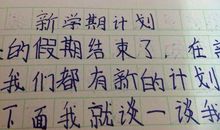 新学期计划
的假期结束了，在
我们都有新的计划
下面我就谈一谈我